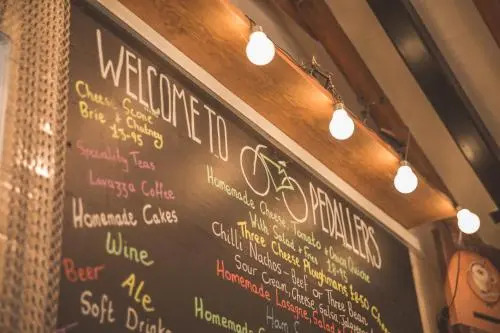 WELCOME TO PEDALLERS
Cheese Scone
Brie & Chutney
Speciality Teas
Lavazza Coffee
Homemade Cakes
Wine
Beer
Ale
Soft Drink
Homemade Cheese, Tomato & Onion Quiche
Milk Salad & Fries
Three Cheese Ploughmans
Chilli Nachos - Beef or Three Bean
Sour Cream, Cheese, Salsa, Jalapeno
Homemade Lasagne, Salad
Homemade
Ham